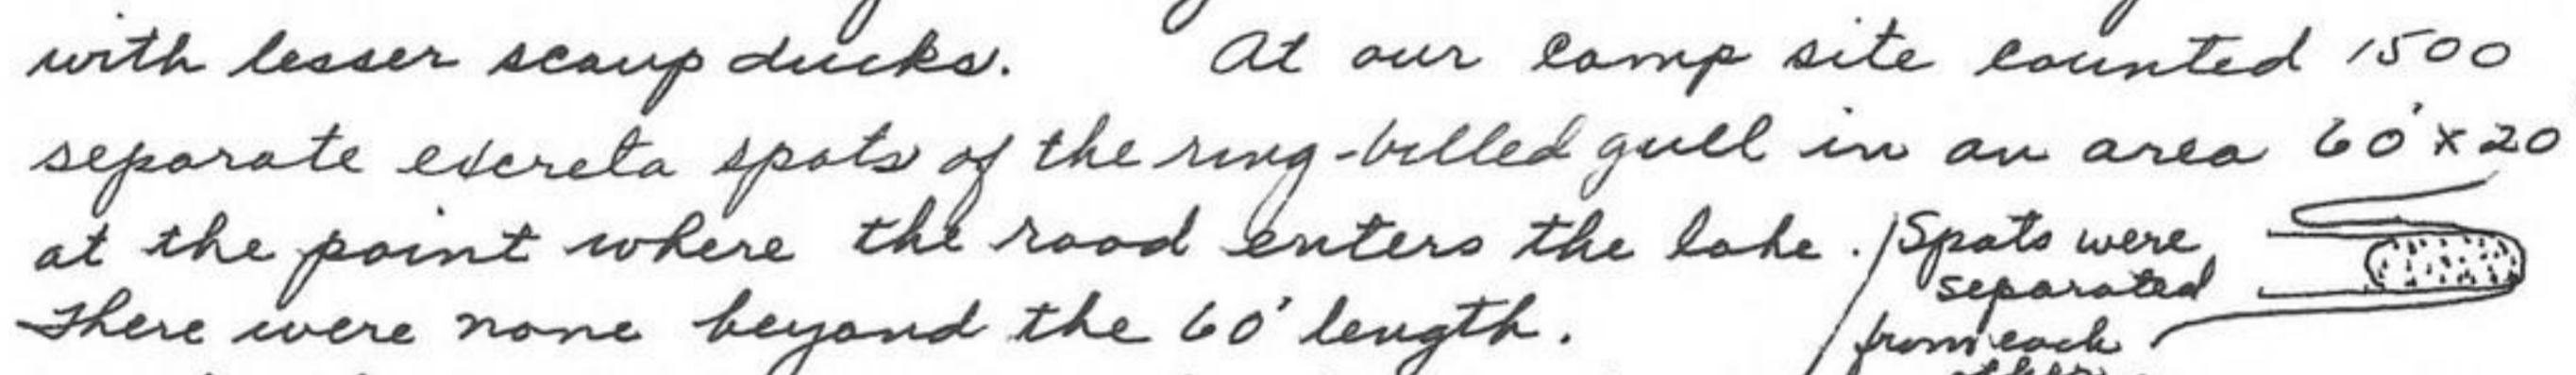 with lesser scaup ducks. At our camp site counted 1500
separate excreta spots of the ring-billed gull in an area 60' x 20
at the point where the road enters the lake.
There were none beyond the 60' length.
Spots were
separated
from each
other